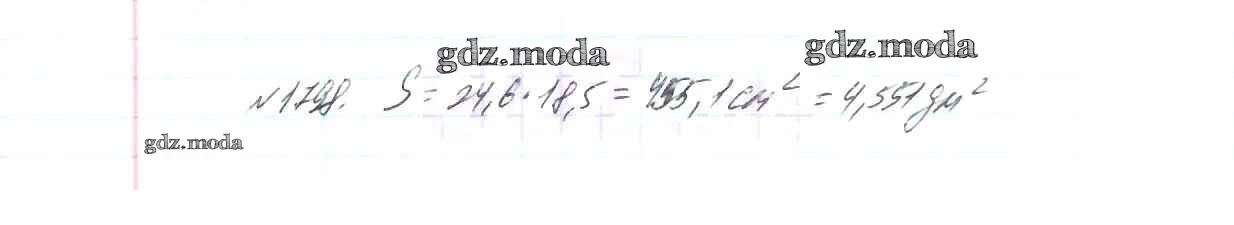 gdz.moda gdz.moda
№1798. S = 24,6 · 18,5 = 455,1 см² = 4,551 дм²
gdz.moda